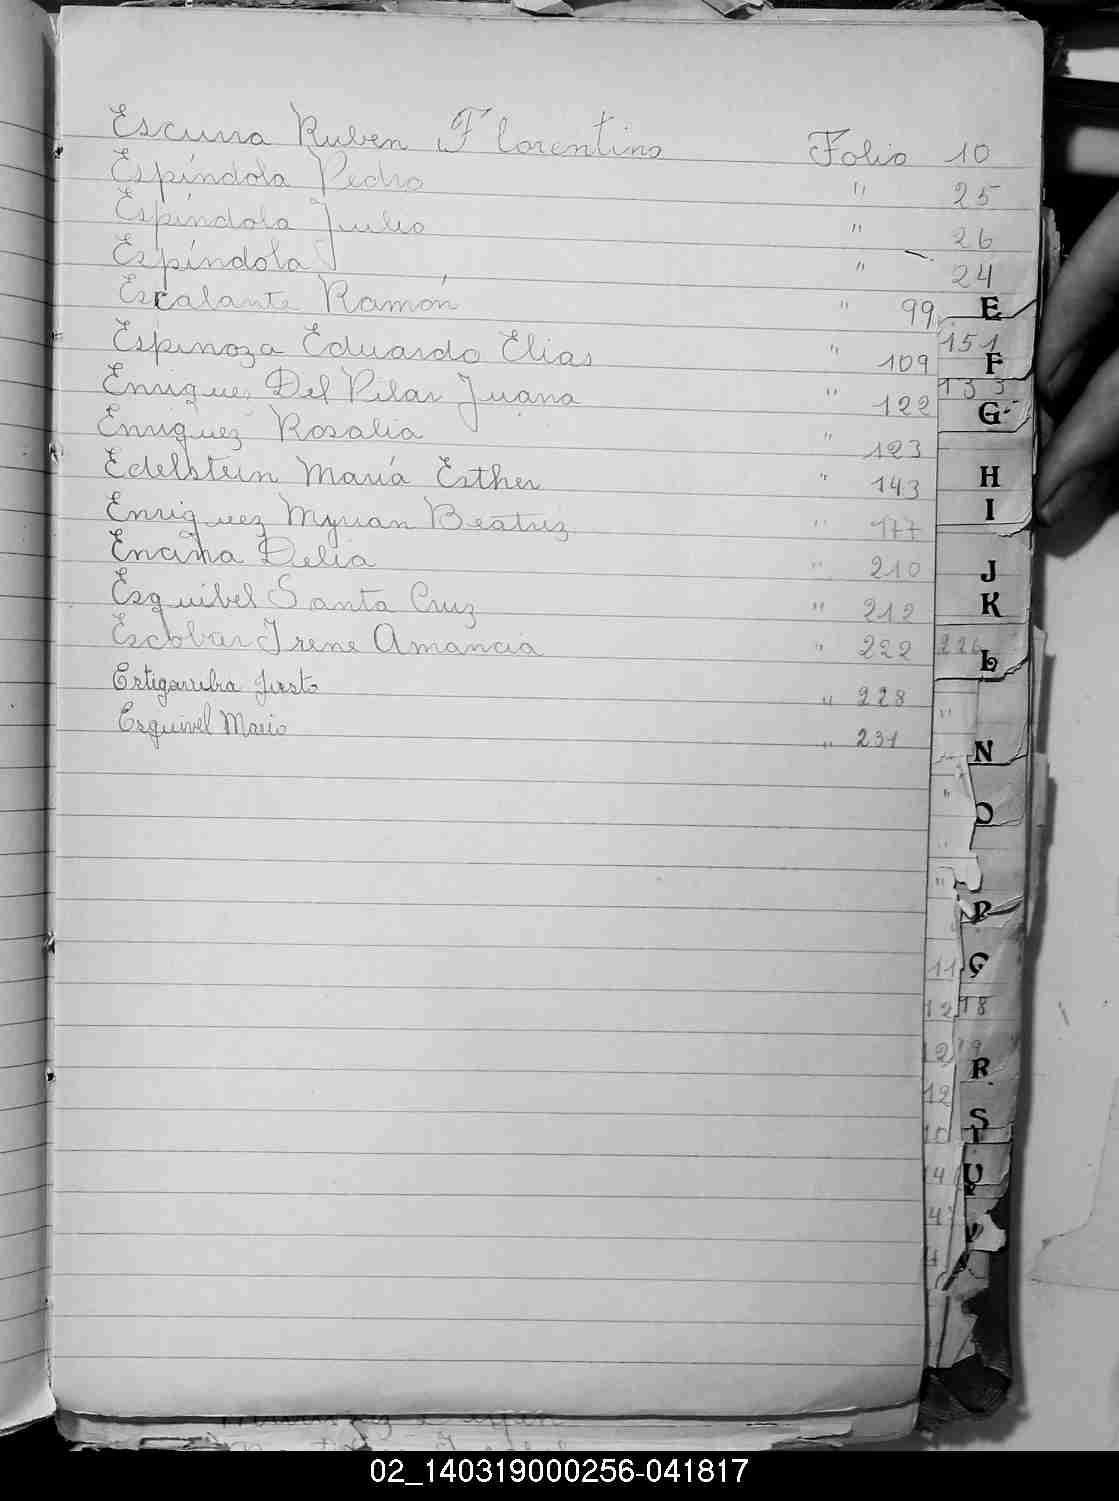 Escurra Ruben Florentino Folio 10
Espíndola Pedro " 25
Espíndola Julio " 26
Espíndola " 24
Escalante Ramón " 99
Espinoza Eduardo Elias " 109
Enrique Del Pilar Juana " 122
Enriquez Rosalia " 123
Edelstein María Esther " 143
Enriquez Myrian Beatriz " 177
Encina Delia " 210
Esquibel Santa Cruz " 212
Escobar Irene Amancia " 222
Estigarribia Justo " 228
Esquivel Mario " 231
E
151
F
133
G
H
I
J
K
226
L
N
O
P
Q
18
19
R
S
T
U
V
02_140319000256-041817